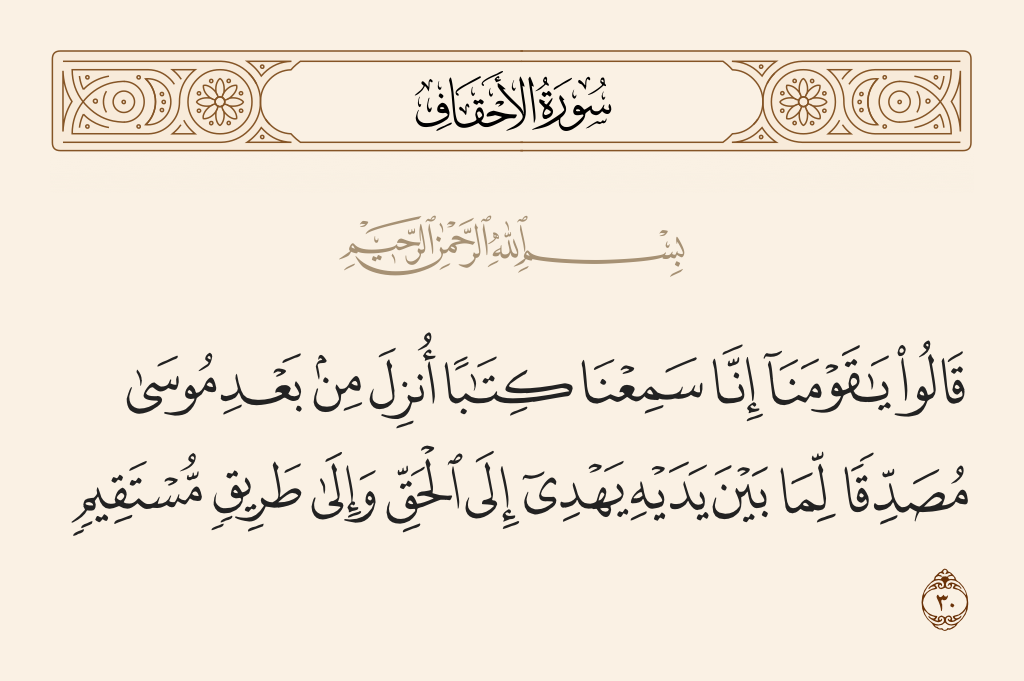 سُورَةُ الأَحْقَافِ
بِسْمِ ٱللَّهِ ٱلرَّحْمَٰنِ ٱلرَّحِيمِ
قَالُوا۟ يَـٰقَوْمَنَآ إِنَّا سَمِعْنَا كِتَـٰبًا أُنزِلَ مِنۢ بَعْدِ مُوسَىٰ
مُصَدِّقًا لِّمَا بَيْنَ يَدَيْهِ يَهْدِىٓ إِلَى ٱلْحَقِّ وَإِلَىٰ طَرِيقٍ مُّسْتَقِيمٍ
٣٠